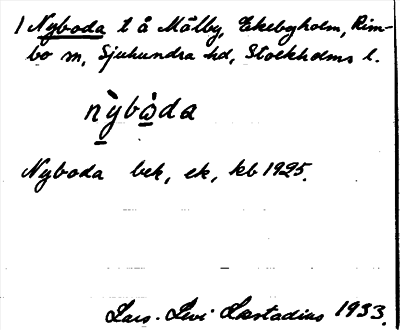 1 Nyboda t å Målby, Ekebyholm, Rim-
bo sn, Sjuhundra hd, Stockholms l.
nỳbòda
Nyboda bek, ek, kb 1925.
Lars-Levi Læstadius 1933.